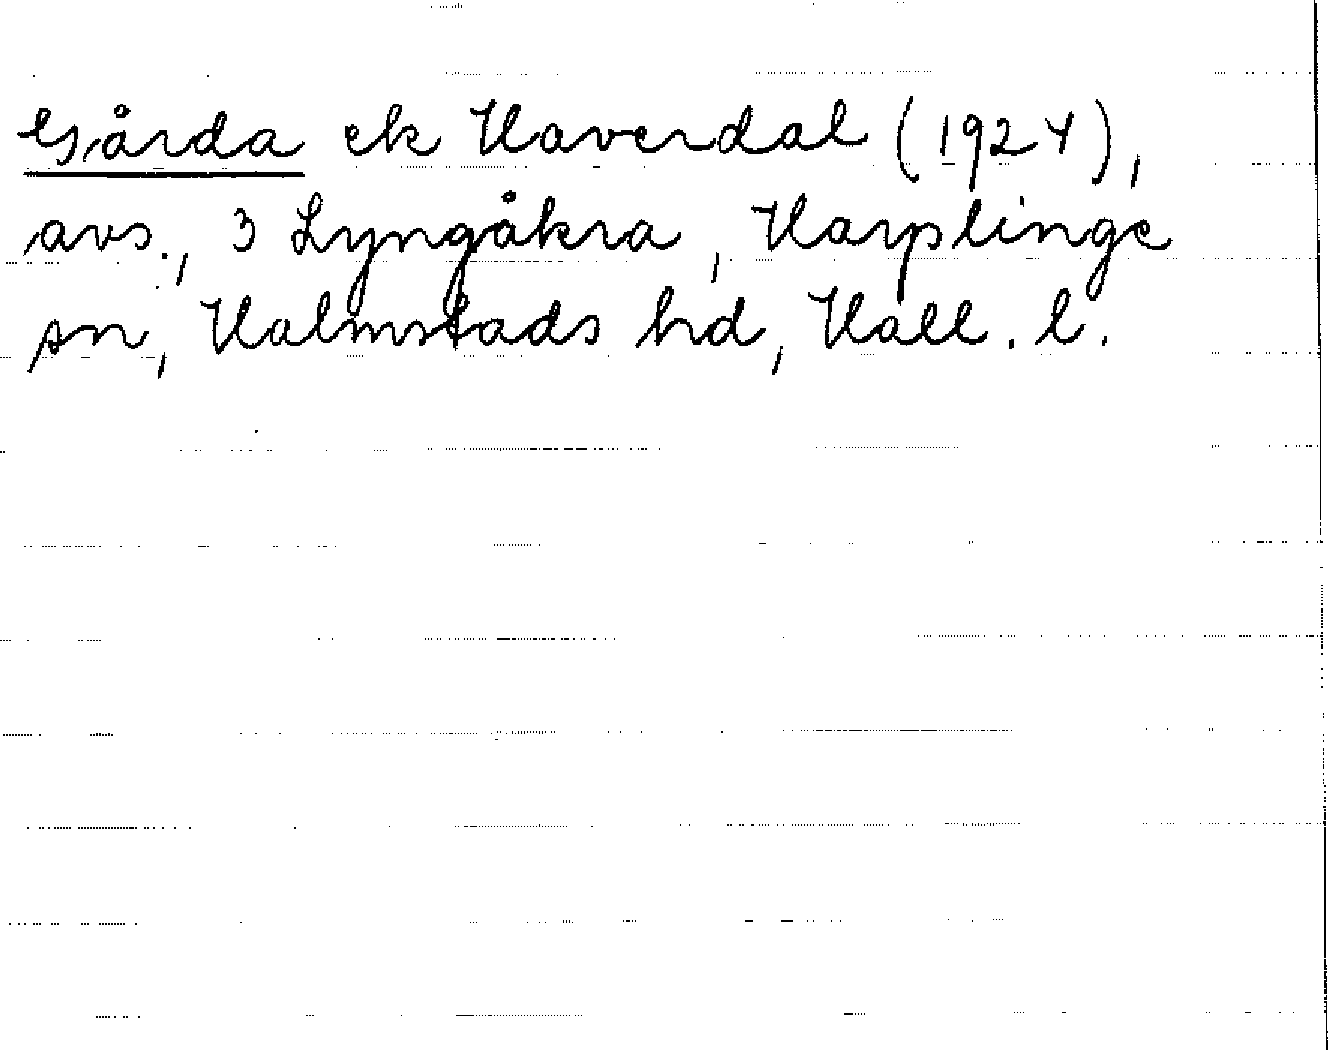 Gårda ek Haverdal (1924),
avs., 3 Lyngåkra, Harplinge
sn, Halmstads hd, Hall. l.